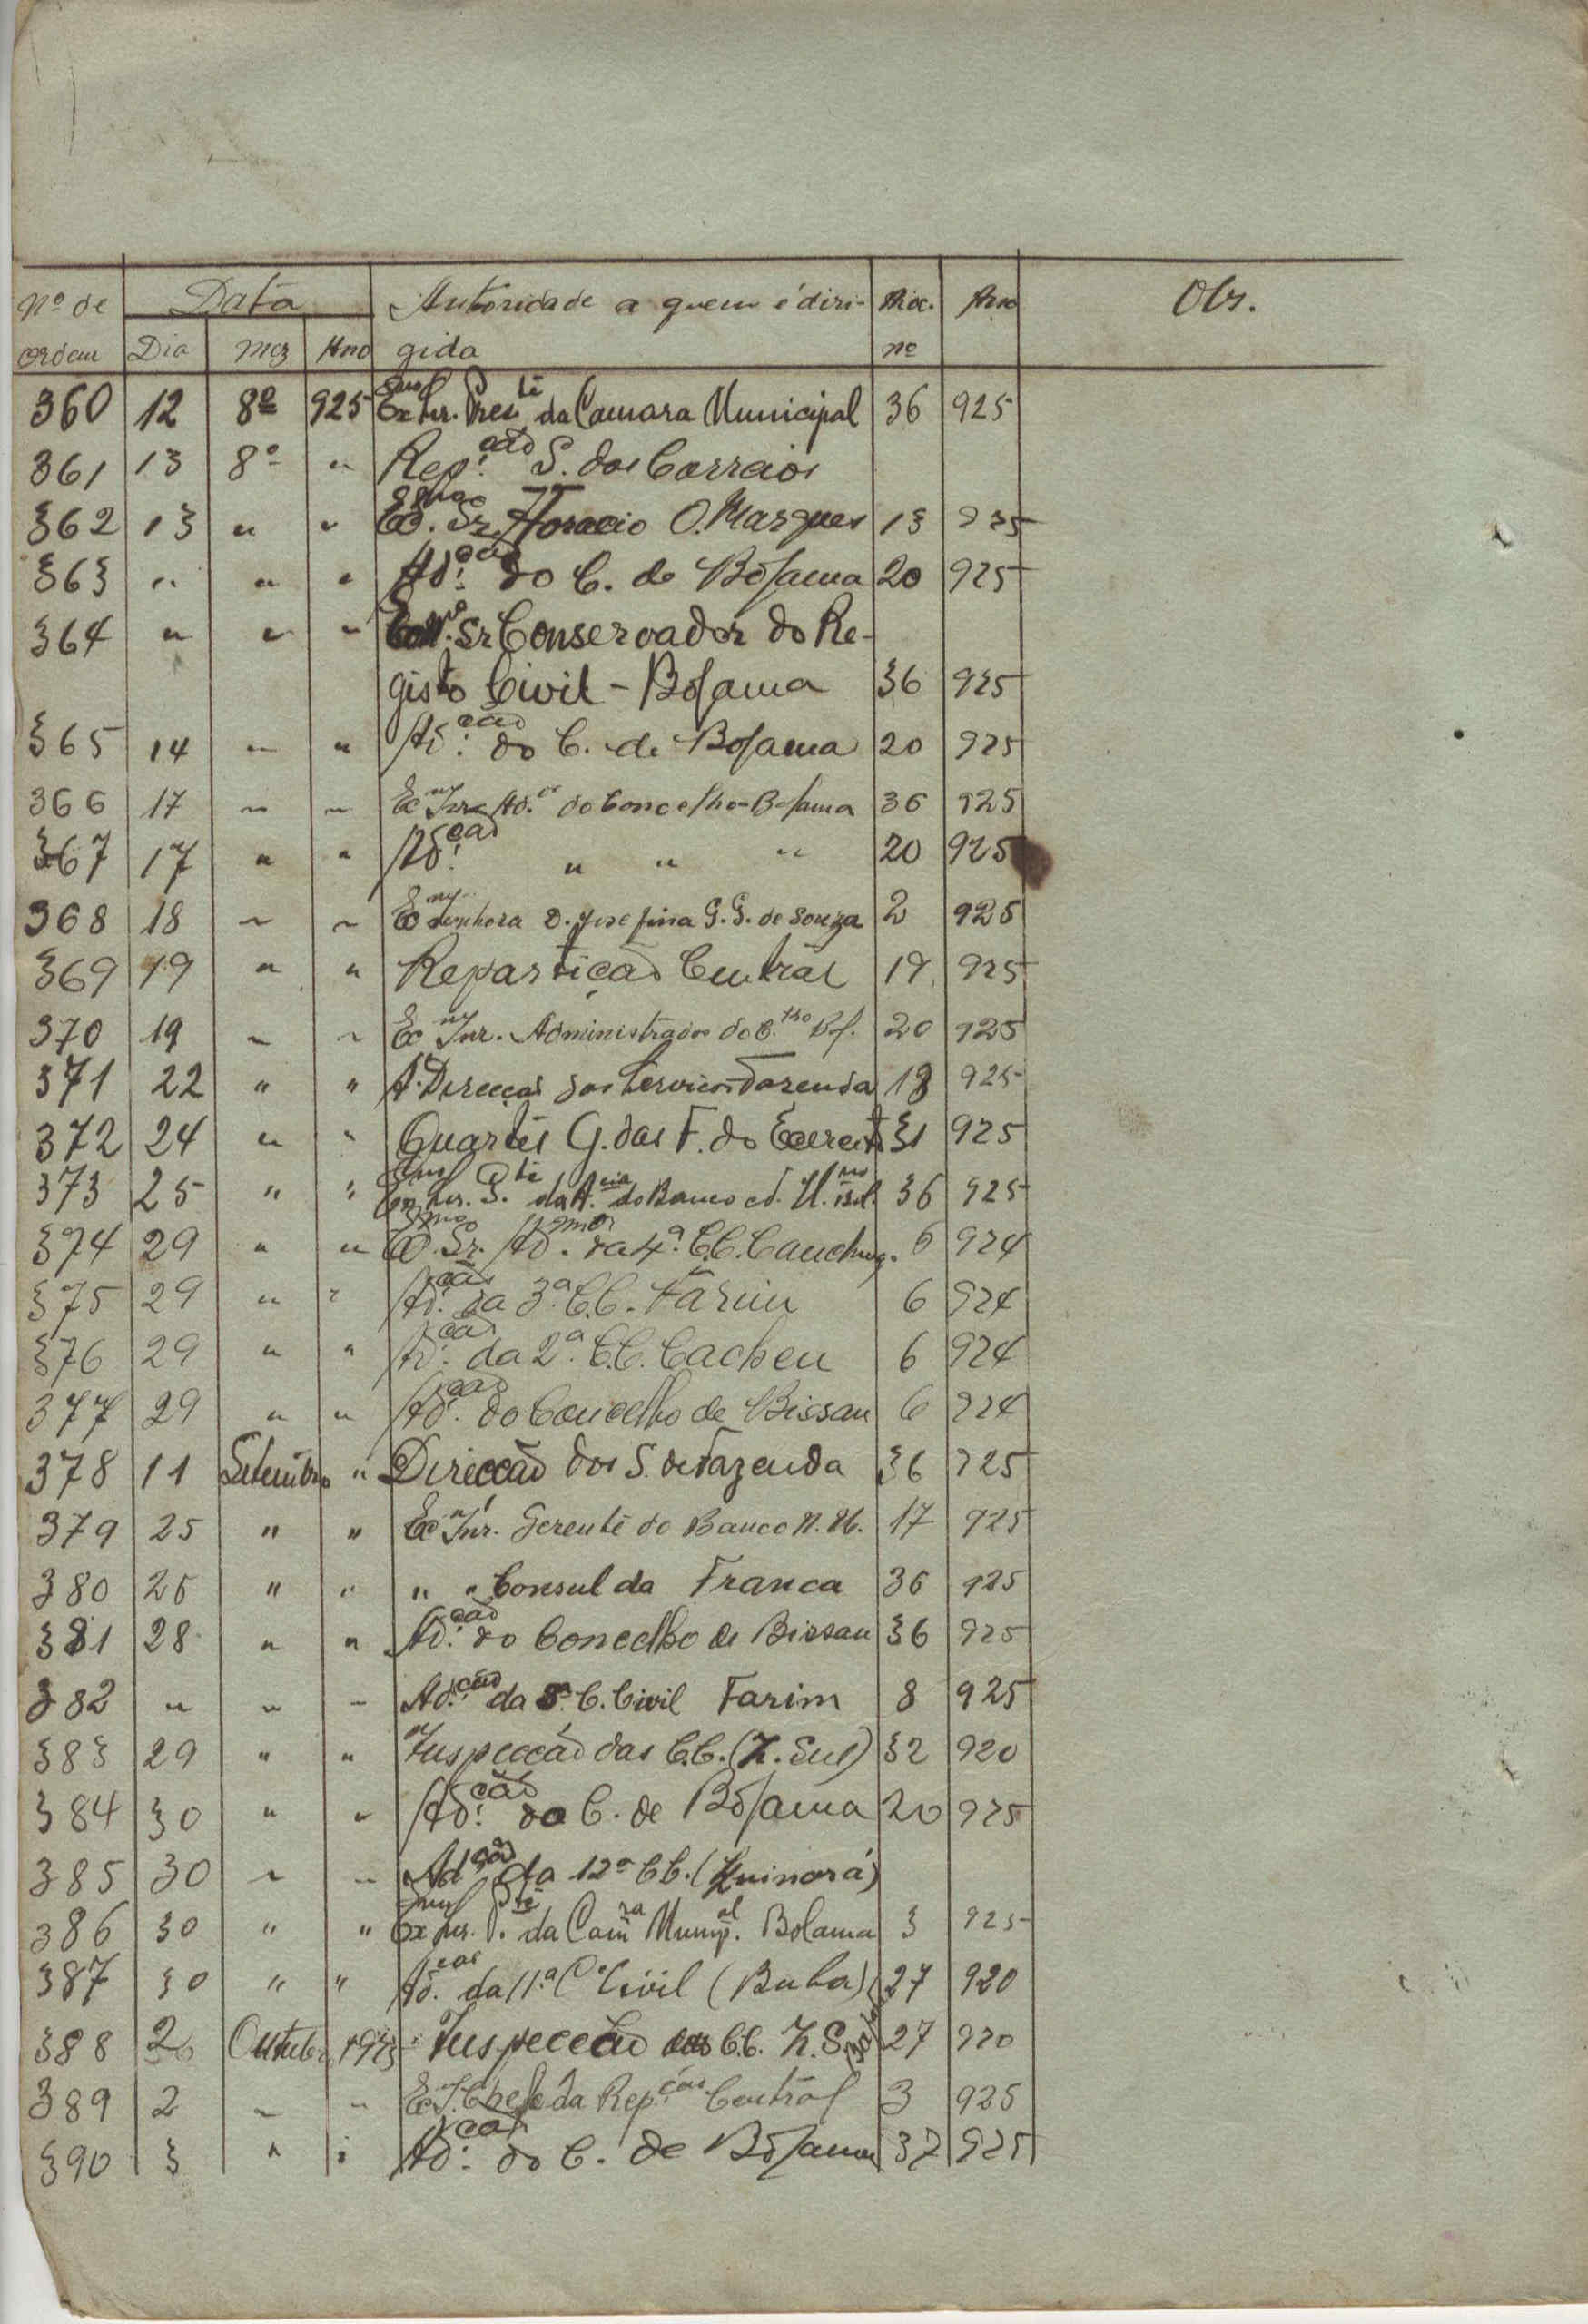 Nº de Data Autoridade a quem é diri- Proc. Ano Obs.
ordem Dia Mez Ano gida nº
360 12 8º 925 Exmo Snr. Preste da Camara Municipal 36 925
361 13 8º " Rep.ção S. dos Correios
362 13 " " Exmo. Sr. Horacio O. Marques 13 925
363 " " " Ad.ção do C. de Bolama 20 925
364 " " " Exmo. Sr Conservador do Re-
gisto Civil - Bolama 36 925
365 14 " " Ad.ção do C. de Bolama 20 925
366 17 " " Ex Snr Ad.or do Concelho - Bolama 36 925
367 17 " " Ad.ção " " " 20 925
368 18 " " Ex Senhora D. Josefina G. G. de Souza 2 925
369 19 " " Repartição Central 19 925
370 19 " " Ex Snr. Administrador do C.lho Bol. 20 925
371 22 " " A Direcção dos Serviços Fazenda 18 925
372 24 " " Quartel G. das F. do Exercito 31 925
373 25 " " Exmo Snr. P.te da A.cia do Banco 36 925
374 29 " " Exmo. Sr. Ad.or da 4ª C.C. Canchung. 6 924
375 29 " " Ad.ção da 3ª C.C. Farim 6 924
376 29 " " Ad.ção da 2ª. C.C. Cacheu 6 924
377 29 " " Ad.ção do Concelho de Bissau 6 924
378 11 Setembro " Direcção dos S. de Fazenda 36 925
379 25 " " Ex Snr. Gerente do Banco N. U. 17 925
380 26 " " " " Consul da Franca 36 925
381 28 " " Ad.ção do Concelho de Bissau 36 925
382 " " " Ad.ção da 3ª C. Civil Farim 8 925
383 29 " " Inspecção das C.C. (Z. Sul) 32 920
384 30 " " Ad.ção do C. de Bolama 20 925
385 30 " " Ad.ção da 12ª C.C. (Quinará)
386 30 " " Exmo Snr. P.te da Camra Munip.al Bolama 3 925
387 30 " " Ad.ção da 11.ª C. Civil (Buba) 27 920
388 2 Outubro 1925 Inspecção das C.C. Z. S. 27 920
389 2 " " Ex S. Chefe da Rep.ção Central 3 925
390 3 " " Ad.ção do C. de Bolama 37 925